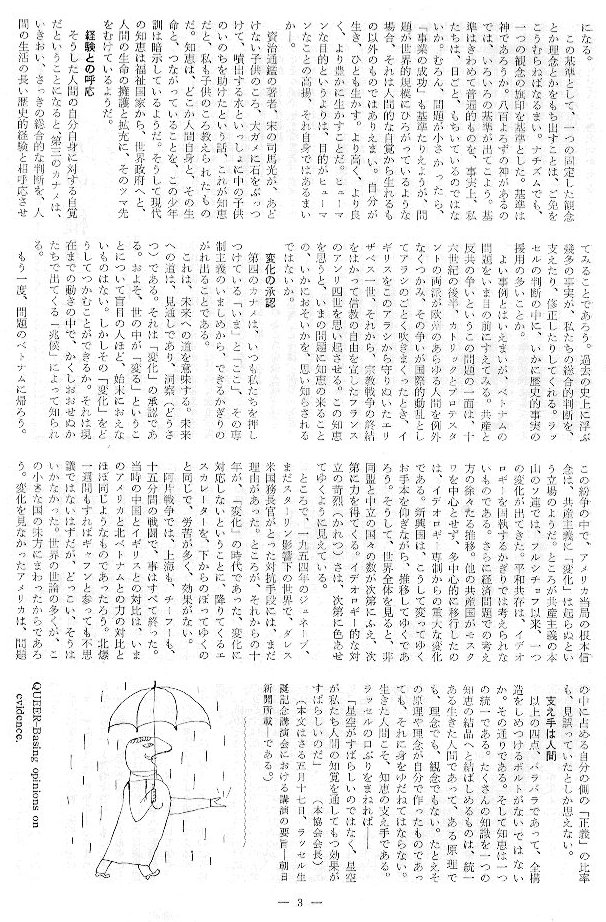 になる。
この基準として、一つの固定した観念
とか理念とかをもち出すことは、ご免を
こうむらねばなるまい。ナチズムでも、
一つの観念の旗印を基準とした。基準は
神であろうか。八百よろずの神があるの
では、いろいろの基準が出てこよう。基
準はきわめて普遍的ものを、事実上、私
たちは、日ごと、もちいているのではな
いか。むろん、問題が小さかったら、
「事業の成功」も基準たりえようが、問
題が世界的規模にひろがっているような
場合、それは人間的な自覚から生れるも
の以外のものではありえまい。自分が
生き、ひとも生かす。より高く、より良
く、より豊かに生かすことだ。ヒューマ
ンな目的というよりは、目的がヒューマ
ンなことの高揚、それ自身ではあるまい
か―。
資治通鑑の著者、宋の司馬光が、あど
けない子供のころ、大ガメに石をぶっつ
けて、噴出する水といっしょに中の子供
のいのちを助けたという話、これが知恵
だと、私も子供のころ教えられたもの
だ。知恵は、どこか人間自身と、その生
命と、つながっていることを、この少年
訓は暗示しているようだ。そうして現代
の知恵は福祉国家から、世界政府へと、
人間の生命の擁護と拡充に、そのツマ先
をむけているようだ。
経験との呼応
そうした人間の自分自身に対する自覚
だということになると、第三のカナメは、
いきおい、さっきの総合的な判断を、人
間の生活の長い歴史的経験と相呼応させ
てみることであろう。過去の史上に浮ぶ
幾多の事実が、私たちの総合的判断を、
支えたり、修正したりしてくれる。ラッ
セルの判断の中に、いかに歴史的事実の
援用の多いことか。
よい事例とはいえまいが、ベトナムの
問題をいま目の前に考えてみる。共産と
反共の争いというこの問題の一面は、十
六世紀の後半、カトリックとプロテスタ
ントの両派が欧州のあらゆる人間を例外
なくつかみ、その争いが国際的動乱とし
てアラシのごとく吹きまくったとき、イ
ギリスをこのアラシから守りぬいたエリ
ザベス一世、それから、宗教戦争の終結
をはかって信教の自由を宣したフランス
のアンリ四世を思い起させる。この知恵
を思うと、いまの問題に知恵の来ること
の、いかにおそいかを、思い知らされる
ではないか。
変化の承認
第四のカナメは、いつも私たちを押し
つけている「いま」と「ここ」、その専
制主義のいましめから、できるかぎりの
がれ出ることである。
これは、未来への道を意味する。未来
への道は、見通しであり、洞察（どうさ
つ）である。それは「変化」の承認であ
る。およそ、世の中が「変る」というこ
とについて盲目の人ほど、始末におえな
いものはない。しかしその「変化」をど
うしてつかむことができるか。それは現
在までの動きの中で、かくしおおせぬか
たちで出てくる「兆候」によって知られ
る。
もう一度、問題のベトナムに帰ろう。
この紛争の中で、アメリカ当局の根本信
念は、共産主義に「変化」は起らぬとい
う立場のようだ。ところが共産主義の本
山のソ連では、フルシチョフ以来、一つ
の変化が出てきた。平和共存は、イデオ
ロギーを固執するかぎりでは考えられな
いものである。さらに経済問題での考え
方の徐々たる推移。他の共産国がモスク
ワを中心とせず、多中心的に移行したの
は、イデオロギー専制からの重大な変化
である。新興国は、こうして変ってゆく
お手本を仰ぎながら、推移してゆくであ
ろう。そうして、世界全体を見ると、非
同盟と中立の国々の数が次第にふえ、次
第に力を得てくる。イデオロギー的な対
立の苛烈（かれつ）さは、次第に色あせ
てゆくように見えている。
ところで、一九五四年のジュネーブ、
まだスターリン影響下の世界で、ダレス
米国務長官がとった対抗手段には、まだ
理由があった。ところが、それからの十
年が、「変化」の時代であった。変化に
対応しないということに、降りてくるエ
スカレーターを、下からのぼってゆくの
と同じで、労苦が多く、効果がない。
阿片戦争では、上海も、チーフーも、
十五分間の戦闘で、事はすべて終った。
当時の中国とイギリスとの対比は、いま
のアメリカと北ベトナムとの力の対比と
ほぼ同じようなものであったろう。北爆
一週間もすればギャフンと参っても不思
議ではないはずだが、どっこい、そうは
いかなかった。世界の世論の多くが、こ
の小さな国の味方にまわったからであろ
う。変化を見なかったアメリカは、問題
の中に占める自分の側の「正義」の比率
も、見誤っていたとしか思えない。
支え手は人間
以上の四点、バラバラであって、全構
造をしめつけるボルトがないではない
か。その通りである。そして知恵は一つ
の統一である。たくさんの知識を一つの
知恵の結晶へと結ばしめるものは、統一
ある生きた人間であって、ある原理で
も、理念でも、観念でもない。たとえそ
の原理や理念が自分で作ったものであっ
ても、それに身をゆだねてはならない。
生きた人間こそ、知恵の支え手である。
ラッセルの口ぶりをまねれば――
「星空がすばらしいのではなく、星空
が私たち人間の知覚を通してもつ効果が
すばらしいのだ」　（本協会会長）
（本文はさる五月十七日、ラッセル生
誕記念講演会における講演の要旨―朝日
新聞所載―である。）
QUEER-Basing opinions on
evidence.
— 3 —